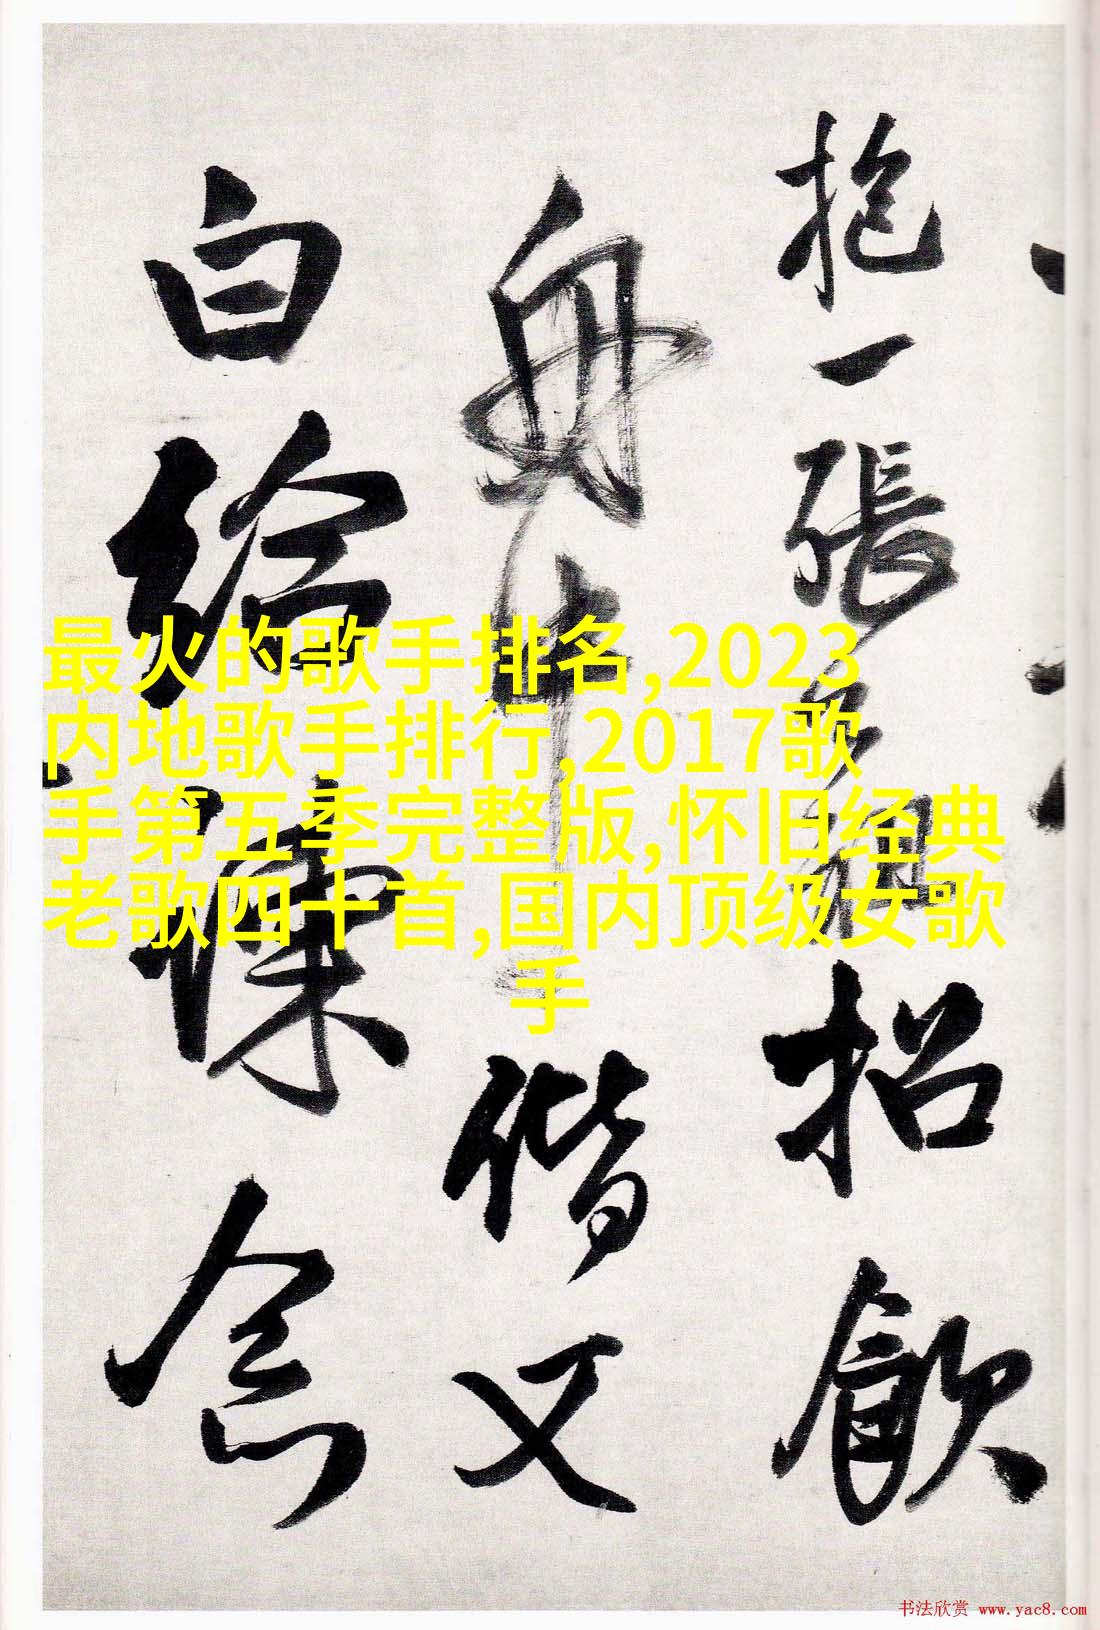 抱一張
招飲
舟中
偕又
白給諫
念
最火的歌手排名,2023
内地歌手排行,2017歌
手第五季完整版,怀旧经典
老歌四十首,国内顶级女歌
手
书法欣赏 www.yac8.com